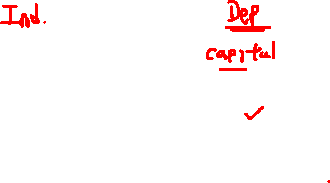 Ind. Dep
capital